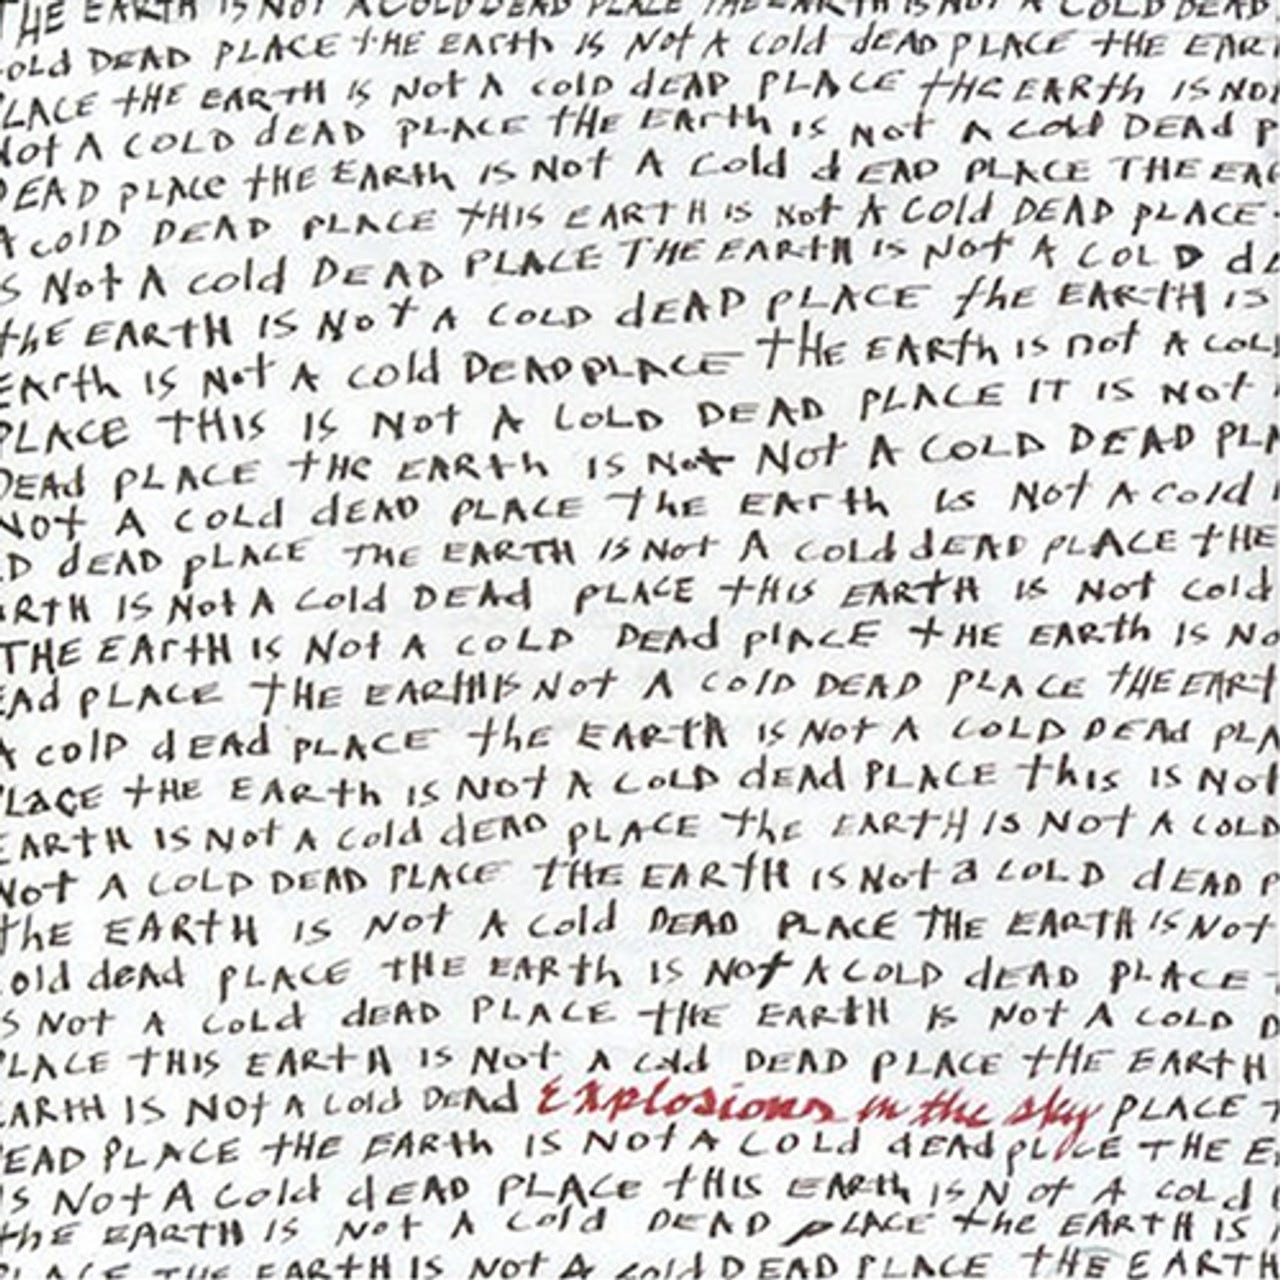 THE EARTH IS NOT A COLD DEAD PLACE THE EARTH IS NOT A COLD DEAD
old DEAD PLACE tHE EARth IS Not A cold dEAD PLACE tHE EAR
LACE tHE EARTH IS Not A colD dEAD PLACE tHE EARth IS NOt
Not A COLD dEAD PLACE tHE EARth IS Not A cold DEAd P
DEAD pLAce tHE EARth IS Not A Cold dEAD PLACE THE EAR
A colD DEAD PLACE tHIS EARTH IS Not A Cold DEAD pLACE
S Not A cold DEAD PLACE THE EARtH IS Not A COLD dE
thE EARtH IS Not A COLD dEAD PLACE thE EARtH IS
EARth IS Not A cold DEADpLACE tHE EARth IS not A COL
PLACE tHIS IS Not A COLD DEAD PLACE IT IS Not
DEAd pLACE tHE EARth IS Not Not A COLD DEAD PLA
NOt A COLd dEAD PLACE thE EARth Is Not A Cold
D dEAD pLACE THE EARTH IS Not A COLddEAD pLACE tHE
RtH IS Not A Cold DEAd PLACE tHIS EARTH IS Not Cold
THE EARtH IS Not A COLD DEAd plACE tHE EARth IS No
EAd PLACE tHE EARtH IS Not A ColD DEAD PLACE tHE EARt
A colD dEAd pLACE thE EARth IS Not A COLD DEAd pLA
LACE tHE EARth IS Not A COLD dEAd PLACE this IS Not
EARtH IS Not A Cold dEAD pLACE thE EARtH IS Not A COLD
Not A COLD DEAD PLACE tHE EARtH IS Not a COLD dEAD P
thE EARtH IS Not A Cold DEAD PLACE tHE EARTH IS Not
old dead PLACE tHE EARth IS Not A COLD dEAD PLACE
S Not A Cold dEAD PLACE tHE EARtH IS Not A COLD D
PLACE tHIS EARtH IS Not A cold DEAD PLACE tHE EARtH
EARtH IS NOt A Cold DEAD Explosions in the sky pLACE t
EAD PLACE tHE EARth IS Not A COLD dEADpLACE tHE E
IS Not A Cold dEAD PLACE tHIS EARth IS Not A COLd
thE EARTH IS Not A Cold DEAD pLACE the EARtH IS
PLACE THE EARtH IS Not A coldDEAD PLACE tHE EARTH